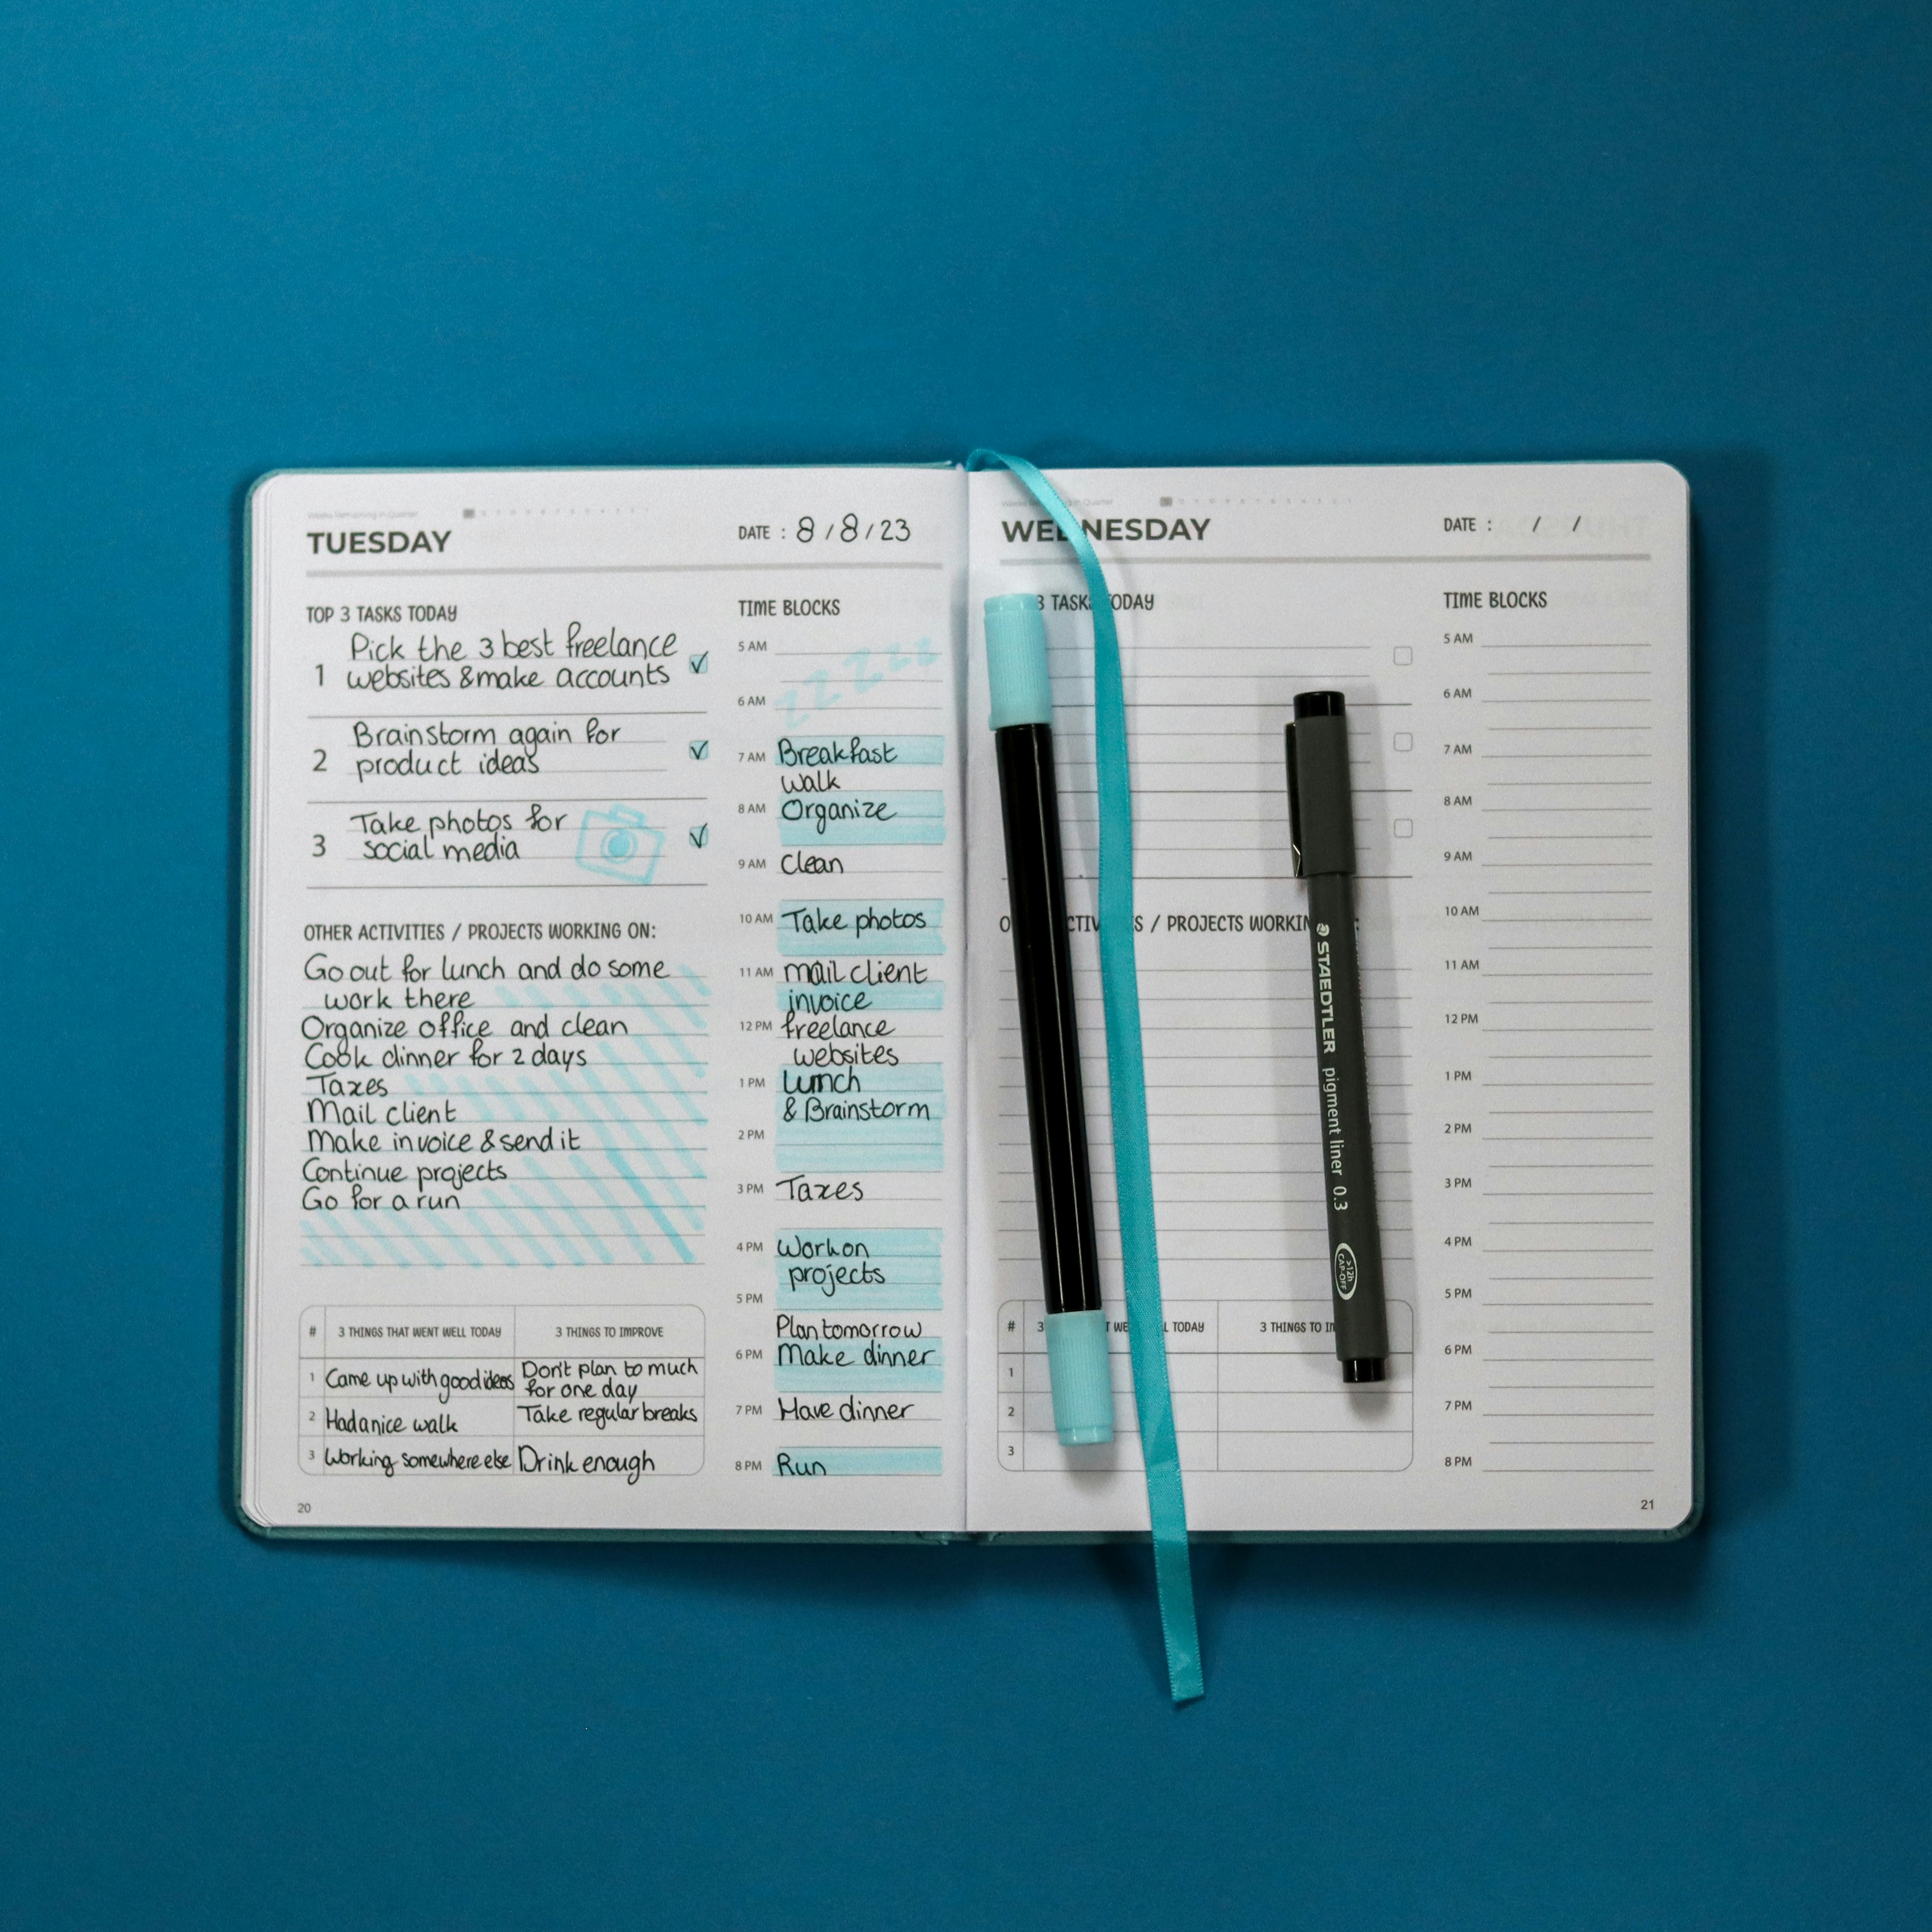 Weeks Remaining in Quarter
TUESDAY
DATE : 8 / 8 / 23
TOP 3 TASKS TODAY
1 Pick the 3 best freelance
websites & make accounts
2 Brainstorm again for
product ideas
3 Take photos for
social media
OTHER ACTIVITIES / PROJECTS WORKING ON:
Go out for lunch and do some
work there
Organize office and clean
Cook dinner for 2 days
Taxes
Mail client
Make invoice & send it
Continue projects
Go for a run
# 3 THINGS THAT WENT WELL TODAY 3 THINGS TO IMPROVE
1 Came up with good ideas Don't plan to much
for one day
2 Had a nice walk Take regular breaks
3 Working somewhere else Drink enough
20
TIME BLOCKS
5 AM
zzzzzz
6 AM
7 AM Breakfast
walk
8 AM Organize
9 AM Clean
10 AM Take photos
11 AM mail client
invoice
12 PM freelance
websites
1 PM Lunch
& Brainstorm
2 PM
3 PM Taxes
4 PM Work on
projects
5 PM
Plan tomorrow
6 PM Make dinner
7 PM Have dinner
8 PM Run
WEDNESDAY
DATE : / /
3 TASKS TODAY
/ PROJECTS WORKIN
# 3 TODAY 3 THINGS TO
1
2
3
TIME BLOCKS
5 AM
6 AM
7 AM
8 AM
9 AM
10 AM
11 AM
12 PM
1 PM
2 PM
3 PM
4 PM
5 PM
6 PM
7 PM
8 PM
21
STAEDTLER pigment liner 0.3
>12h
CAP-OFF